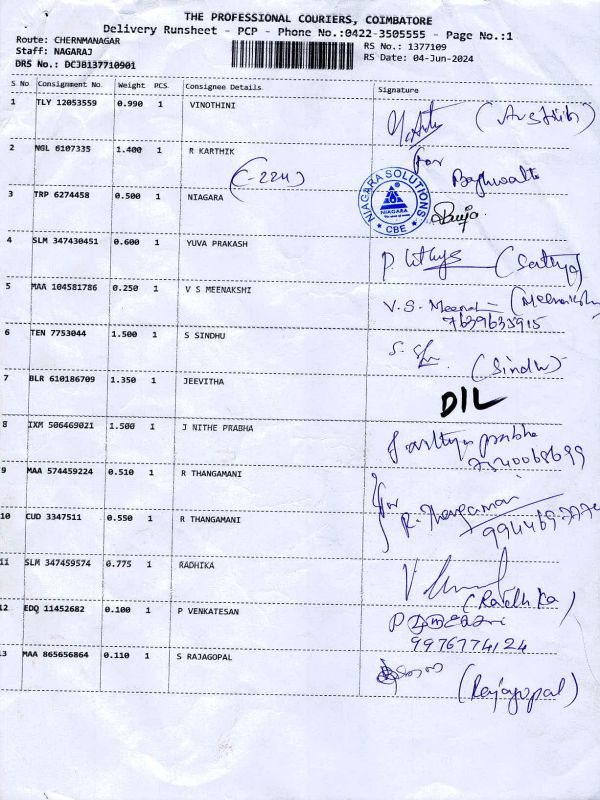 THE PROFESSIONAL COURIERS, COIMBATORE
Delivery Runsheet - PCP - Phone No.:0422-3505555 - Page No.:1
Route: CHERNMANAGAR
RS No.: 1377109
Staff: NAGARAJ
RS Date: 04-Jun-2024
DRS No.: DCJB137710901
S No Consignment No. Weight PCS Consignee Details Signature
1 TLY 12053559 0.990 1 VINOTHINI
2 NGL 6107335 1.400 1 R KARTHIK
for
3 TRP 6274458 0.500 1 NIAGARA
NIAGARA SOLUTIONS
NIAGARA
CBE
4 SLM 347430451 0.600 1 YUVA PRAKASH
(Sathya)
5 MAA 104581786 0.250 1 V S MEENAKSHI
V.S. (Meenakshi
7639633915
6 TEN 7753044 1.500 1 S SINDHU
(Sindhu)
7 BLR 610186709 1.350 1 JEEVITHA
DIL
8 IXM 506469021 1.500 1 J NITHE PRABHA
prabha
9 MAA 574459224 0.510 1 R THANGAMANI
for
R. Thangamani
10 CUD 3347511 0.550 1 R THANGAMANI
11 SLM 347459574 0.775 1 RADHIKA
(Radhika)
12 EDQ 11452682 0.100 1 P VENKATESAN
9976774124
13 MAA 865656864 0.110 1 S RAJAGOPAL
(Rajagopal)